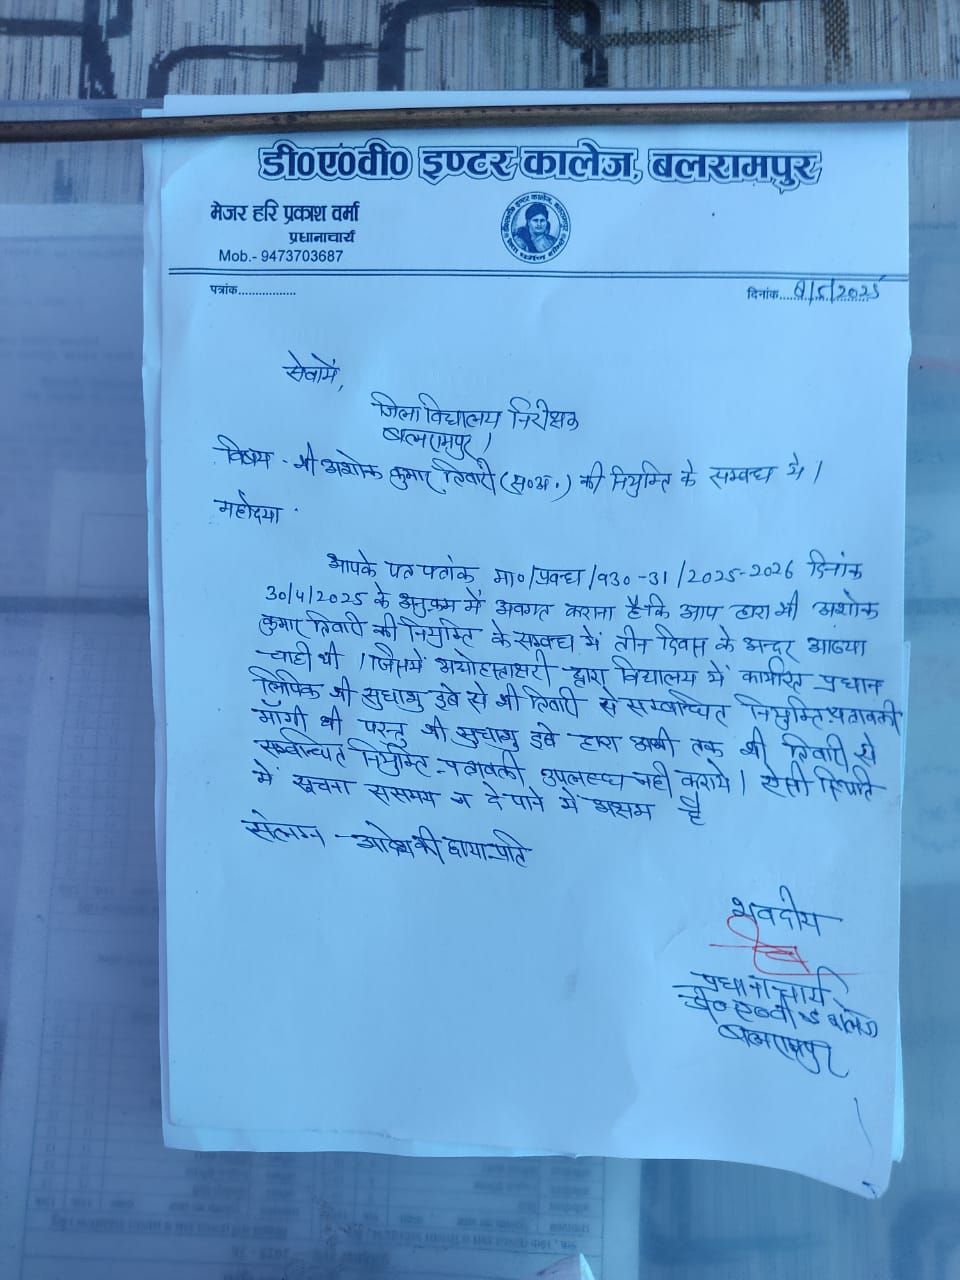 डी०ए०वी० इण्टर कालेज, बलरामपुर
मेजर हरि प्रकाश वर्मा
प्रधानाचार्य
Mob.- 9473703687
पत्रांक................
दिनांक.../5/2025
सेवामें,
जिला विद्यालय निरीक्षक
बलरामपुर।
विषय - श्री अशोक कुमार तिवारी (स०अ.) की नियुक्ति के सम्बन्ध मे।
महोदया
आपके पत्र पत्रांक मा०/प्रबन्ध/930-31/2025-2026 दिनांक
30/4/2025 के अनुक्रम में अवगत कराना है कि आप द्वारा श्री अशोक
कुमार तिवारी की नियुक्ति के सम्बन्ध में तीन दिवस के अन्दर आख्या
चाही थी। जिसमें अधोहस्ताक्षरी द्वारा विद्यालय में कार्यरत प्रधान
लिपिक श्री सुधांशु दुबे से श्री तिवारी से सम्बन्धित नियुक्ति पत्रावली
माँगी थी परन्तु श्री सुधांशु दुबे द्वारा अभी तक श्री तिवारी से
सम्बन्धित नियुक्ति-पत्रावली उपलब्ध नही कराये। ऐसी स्थिति
में सूचना ससमय न दे पाने में अक्षम है
संलग्न - आदेश की छायाप्रति
भवदीय
प्रधानाचार्य
डी०ए०वी० इ कालेज
बलरामपुर